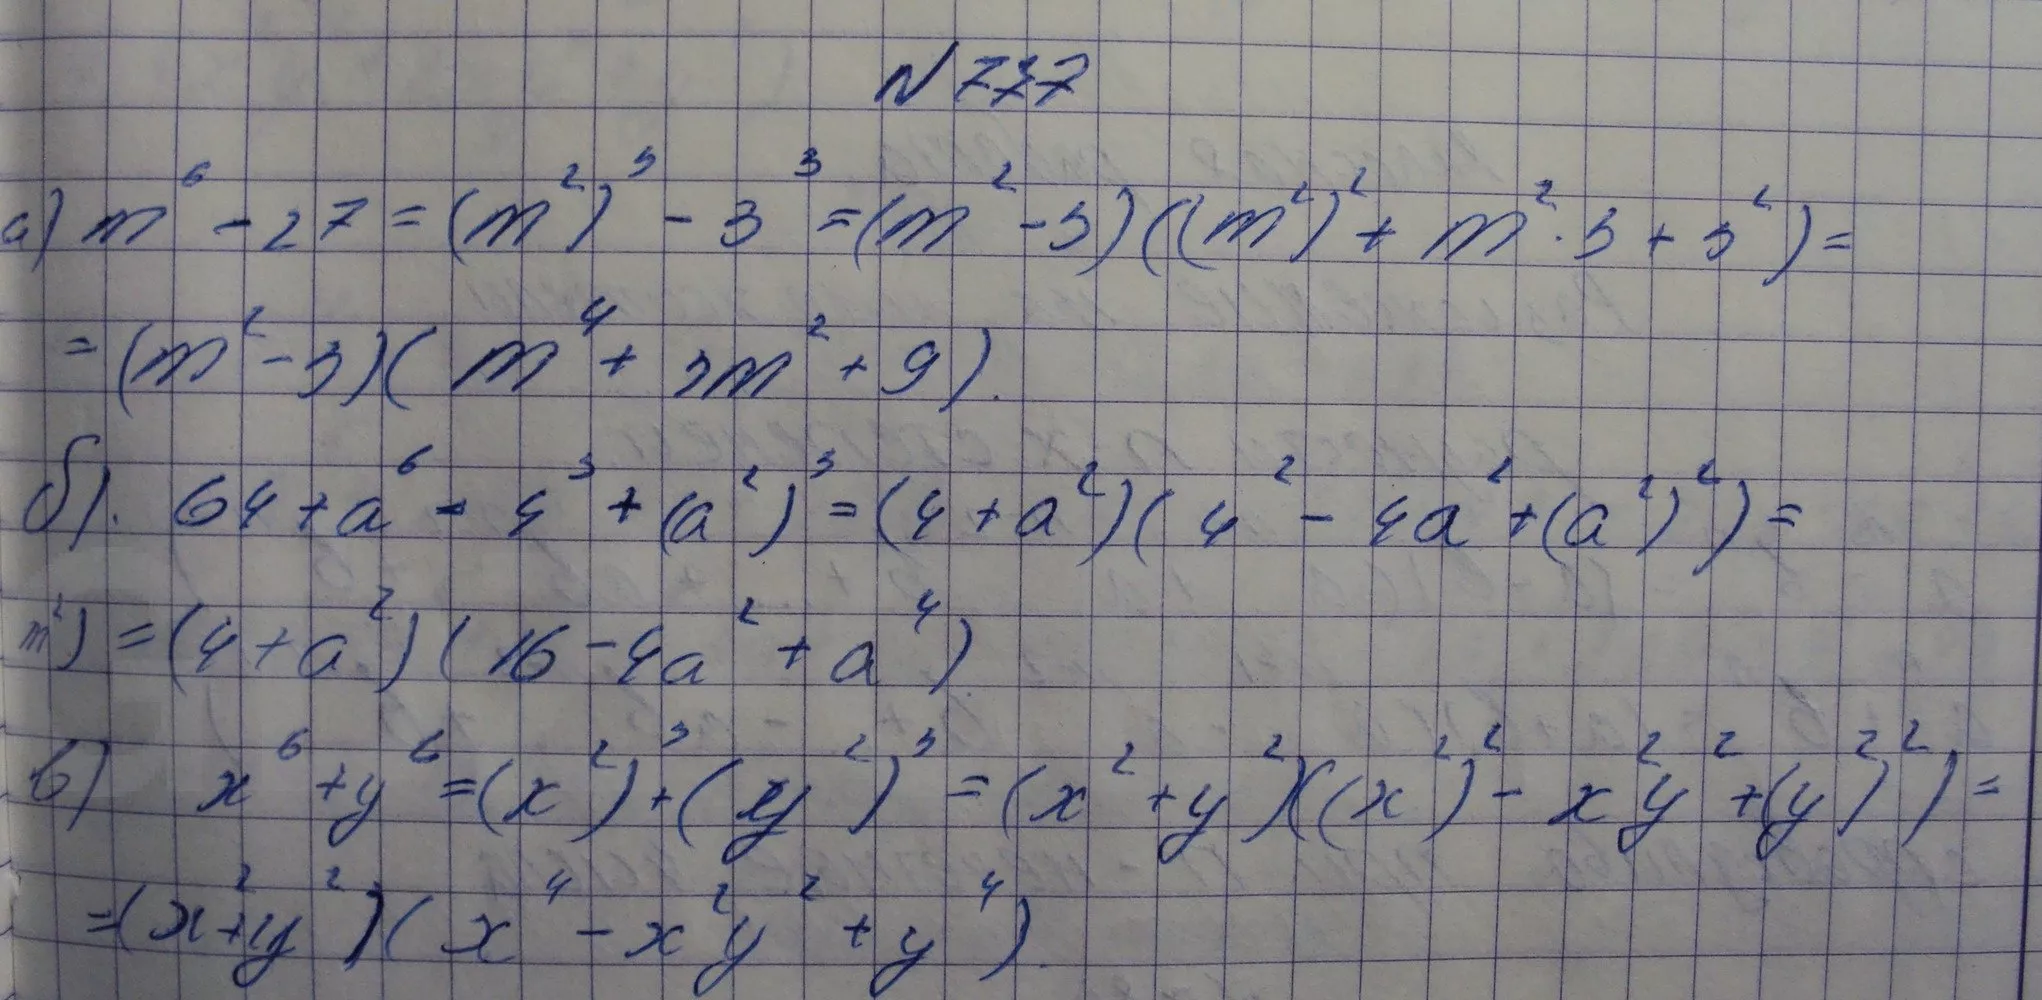 N 737
а) m⁶ - 27 = (m²)³ - 3³ = (m² - 3)((m²)² + m² · 3 + 3²) =
= (m² - 3)(m⁴ + 3m² + 9).
б). 64 + a⁶ = 4³ + (a²)³ = (4 + a²)(4² - 4a² + (a²)²) =
m²) = (4 + a²)(16 - 4a² + a⁴)
в) x⁶ + y⁶ = (x²)³ + (y²)³ = (x² + y²)((x²)² - x²y² + (y²)²) =
= (x² + y²)(x⁴ - x²y² + y⁴).